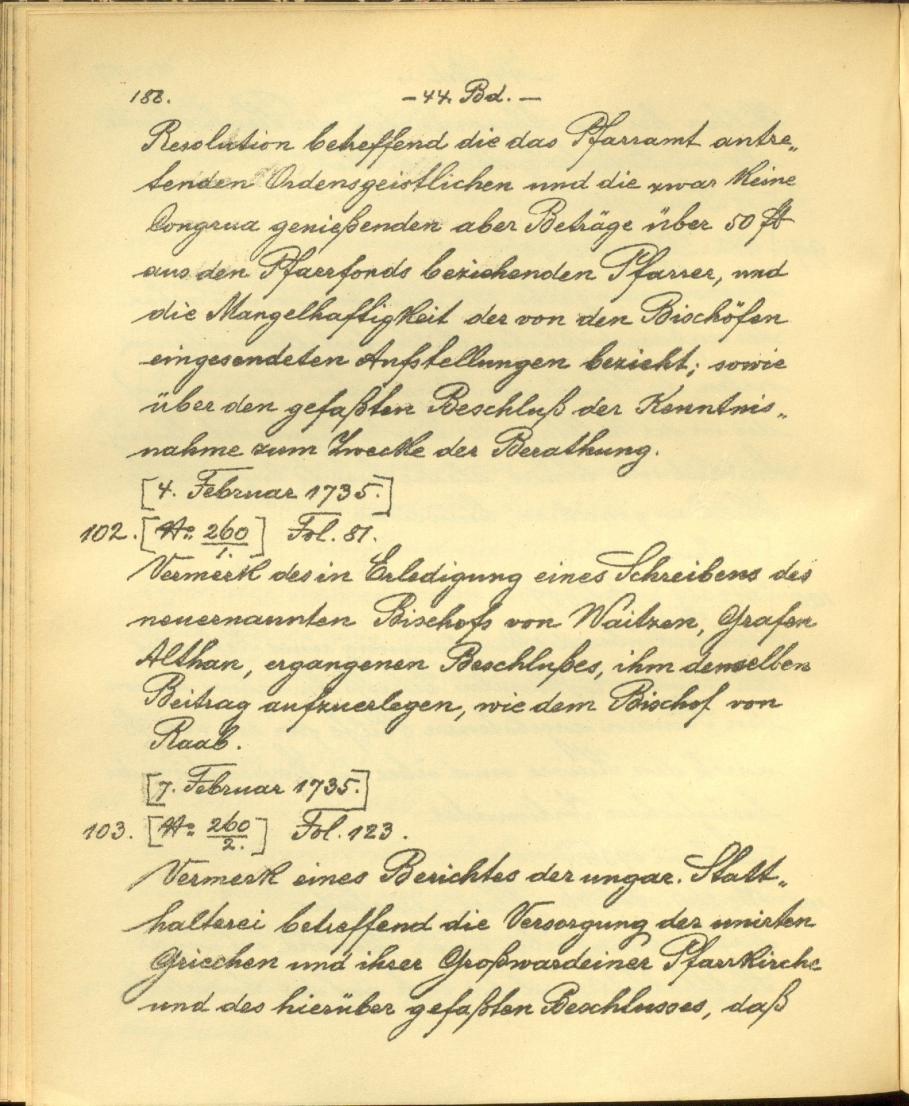 188. – 44. Bd. –
Resolution betreffend die das Pfarramt antre„
tenden Ordensgeistlichen und die zwar keine
Congrua genießenden aber Beträge über 50 fl
aus den Pfarrfonds beziehenden Pfarrer, und
die Mangelhaftigkeit der von den Bischöfen
eingesendeten Aufstellungen bezieht; sowie
über den gefaßten Beschluß der Kenntnis„
nahme zum Zwecke der Berathung.
[4. Februar 1735.]
102. [No. 260/1.] Fol. 81.
Vermerk des in Erledigung eines Schreibens des
neuernannten Bischofs von Waitzen, Grafen
Althan, ergangenen Beschlußes, ihm denselben
Beitrag aufzuerlegen, wie dem Bischof von
Raab.
[7. Februar 1735.]
103. [No. 260/2.] Fol. 123.
Vermerk eines Berichtes der ungar. Statt„
halterei betreffend die Versorgung der unirten
Griechen und ihrer Großwardeiner Pfarrkirche
und des hierüber gefaßten Beschlusses, daß